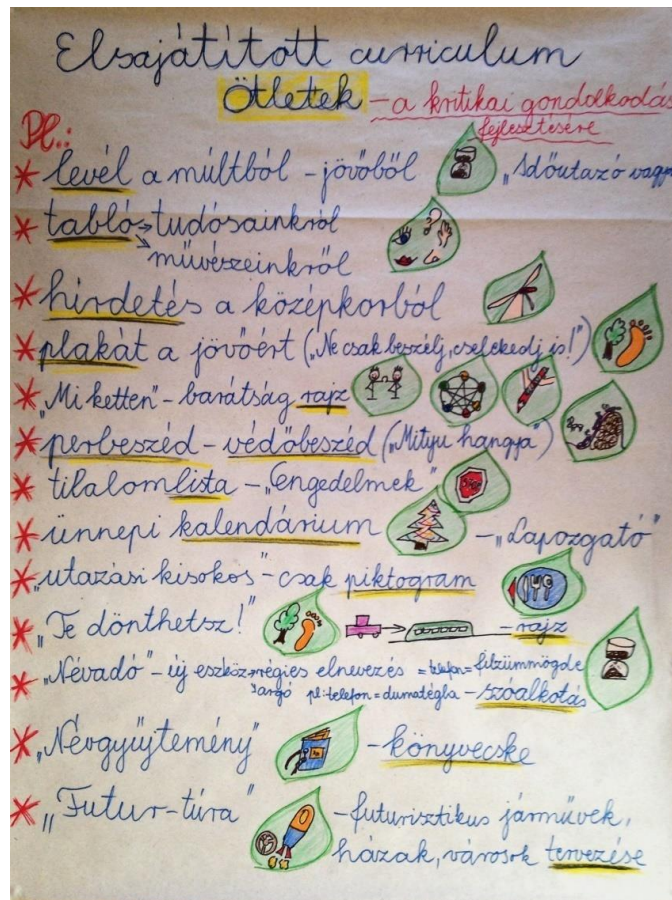 Elsajátított curriculum
Ötletek - a kritikai gondolkodás
fejlesztésére
Pl.:
* levél a múltból - jövőből „Időutazó vagyok
* tabló → tudósainkról
→ művészeinkről
* hirdetés a középkorból
* plakát a jövőért („Ne csak beszélj, cselekedj is!")
* „Mi ketten" - barátság rajz
* perbeszéd - védőbeszéd („Mityu hangya")
* tilalomlista - „Engedelmek"
* ünnepi kalendárium - „Lapozgató"
* „utazási kisokos" - csak piktogram
* „Te dönthetsz!" - rajz
* „Névadó" - új eszköz → régies elnevezés = telefon =
argó pl: telefon = dumatégla - szóalkotás
* „Névgyűjtemény" - könyvecske
* „Futur-túra" - futurisztikus járművek,
házak, városok tervezése